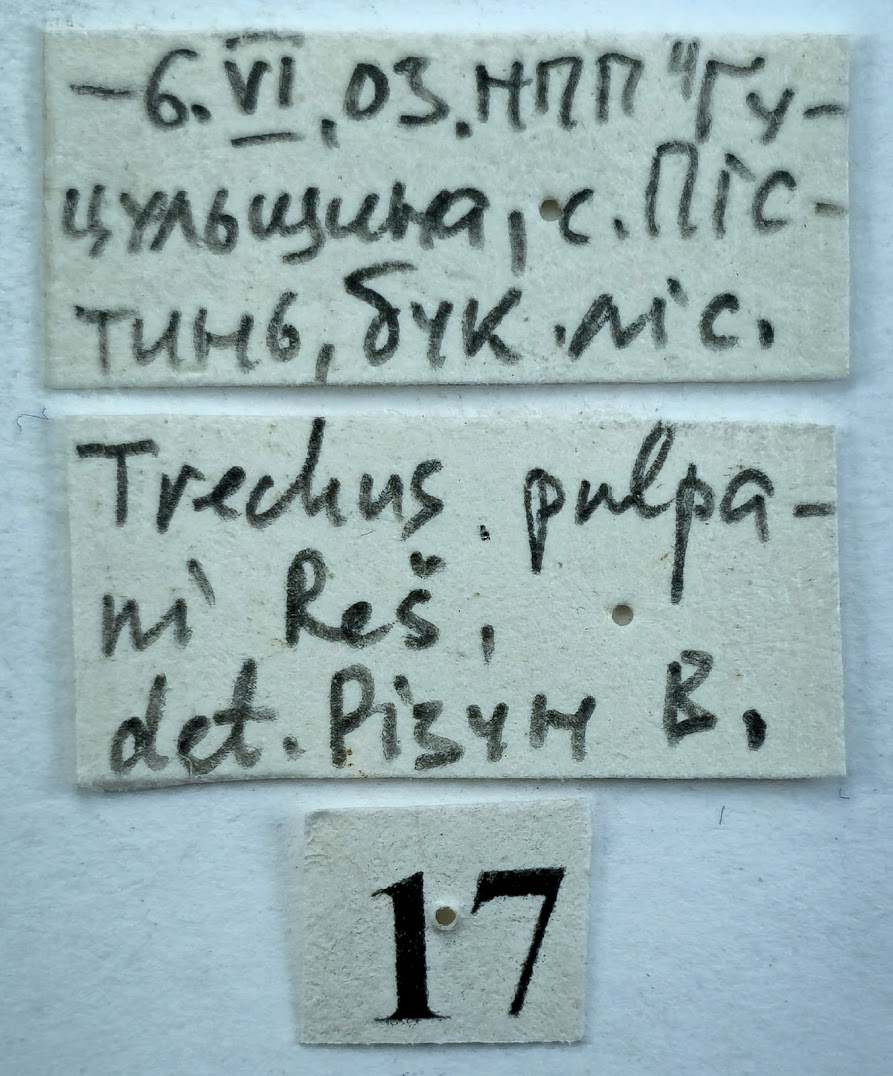 -6.VI.03.НПП "Гу-
цульщина, с. Піс-
тинь, бук. ліс.
Trechus pulpa-
ni Reš.,
det. Різун В.
17